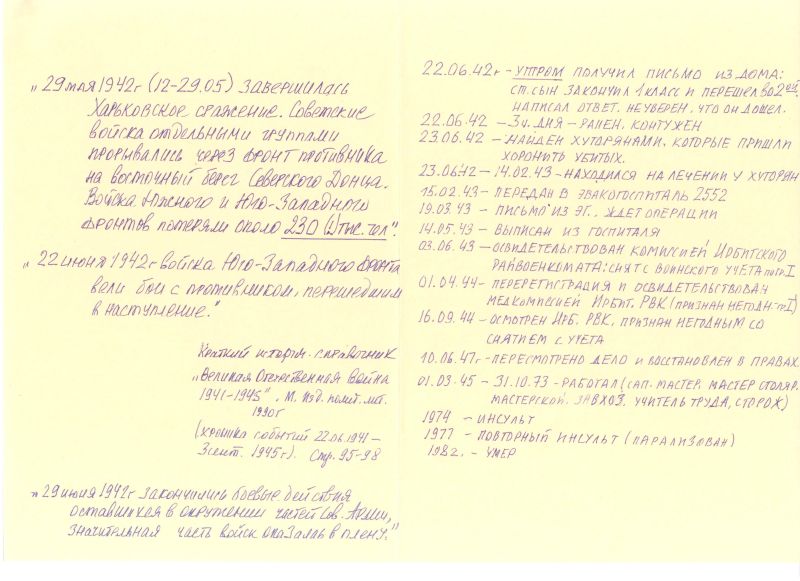 „29 мая 1942г (12-29.05) завершилась
Харьковское сражение. Советские
войска отдельными группами
прорывались через фронт противника
на восточный берег Северского Донца.
Войска Южного и Юго-Западного
фронтов потеряли около 230 (!) тыс. чел".
„22 июня 1942г войска Юго-Западного фронта
вели бои с противником, перешедшим
в наступление."
Краткий историч. справочник
„Великая Отечественная война
1941-1945". М. Изд. полит. лит.
1990г
(хроника событий 22.06.1941 –
3 сент. 1945г). Стр. 95-98
„29 июня 1942г закончились боевые действия
оставшихся в окружении частей Сов. Армии,
значительная часть войск оказалась в плену."
22.06.42г - утром получил письмо из дома:
ст. сын закончил 1 класс и перешел во 2ой.
написал ответ. не уверен, что он дошел.
22.06.42 – 3ч. дня – ранен, контужен
23.06.42 – найден хуторянами, которые пришли
хоронить убитых.
23.06.42 – 14.02.43 – находился на лечении у хуторян
15.02.43 – передан в эвакогоспиталь 2552
19.03.43 – письмо из эг., ждет операции
14.05.43 – выписан из госпиталя
03.06.43 – освидетельствован комиссией Ирбитского
райвоенкомата: снят с воинского учета
01.04.44 – перерегистрация и освидетельствован
медкомиссией Ирбит. РВК (признан негодн.
16.09.44 – осмотрен Ирб. РВК, признан негодным со
снятием с учета
10.06.47г. – пересмотрено дело и восстановлен в правах.
01.03.45 – 31.10.73 – работал (сап. мастер, мастер столяр.
мастерской, завхоз, учитель труда, сторож)
1974 – инсульт
1977 – повторный инсульт (парализован)
1982. – умер